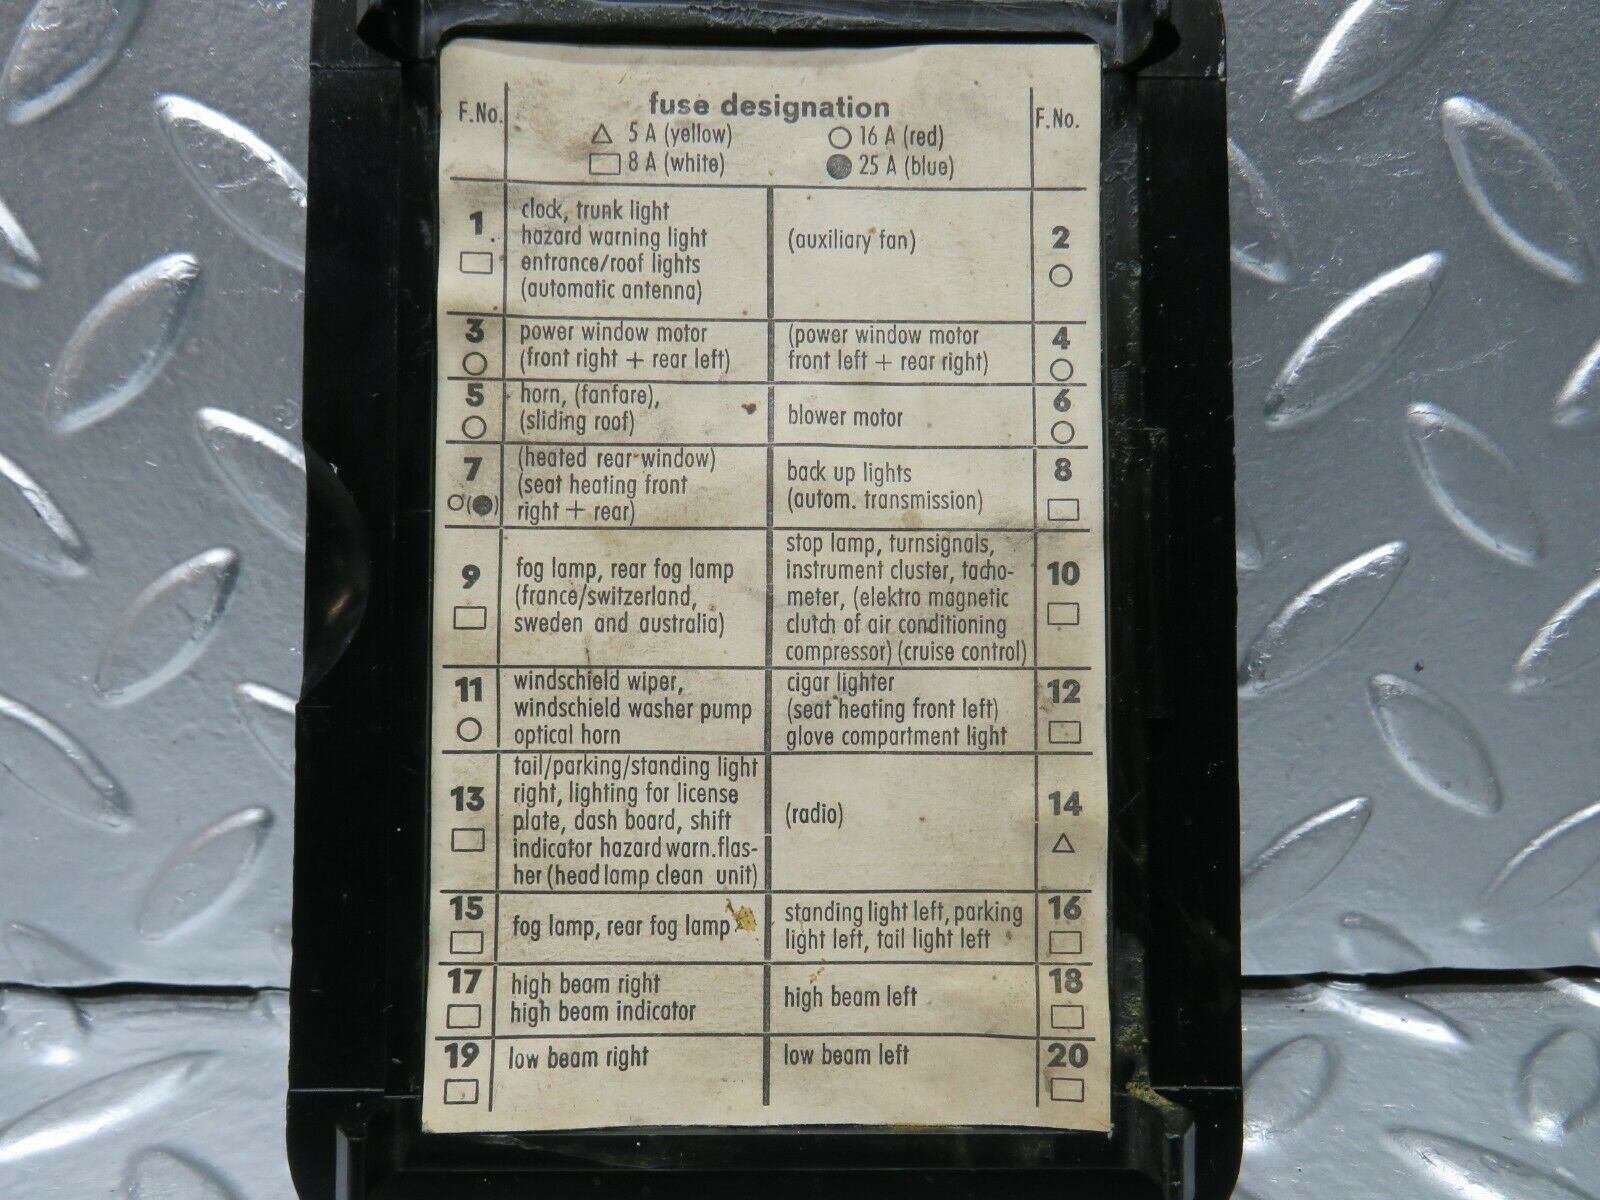 F.No.
fuse designation
F.No.
△ 5 A (yellow)
○ 16 A (red)
□ 8 A (white)
● 25 A (blue)
1
□
clock, trunk light
hazard warning light
entrance/roof lights
(automatic antenna)
(auxiliary fan)
2
○
3
○
power window motor
(front right + rear left)
(power window motor
front left + rear right)
4
○
5
○
horn, (fanfare),
(sliding roof)
blower motor
6
○
7
○(●)
(heated rear window)
(seat heating front
right + rear)
back up lights
(autom. transmission)
8
□
9
□
fog lamp, rear fog lamp
(france/switzerland,
sweden and australia)
stop lamp, turnsignals,
instrument cluster, tacho-
meter, (elektro magnetic
clutch of air conditioning
compressor) (cruise control)
10
□
11
○
windschield wiper,
windschield washer pump
optical horn
cigar lighter
(seat heating front left)
glove compartment light
12
□
13
□
tail/parking/standing light
right, lighting for license
plate, dash board, shift
indicator hazard warn.flas-
her (head lamp clean unit)
(radio)
14
△
15
□
fog lamp, rear fog lamp
standing light left, parking
light left, tail light left
16
□
17
□
high beam right
high beam indicator
high beam left
18
□
19
□
low beam right
low beam left
20
□